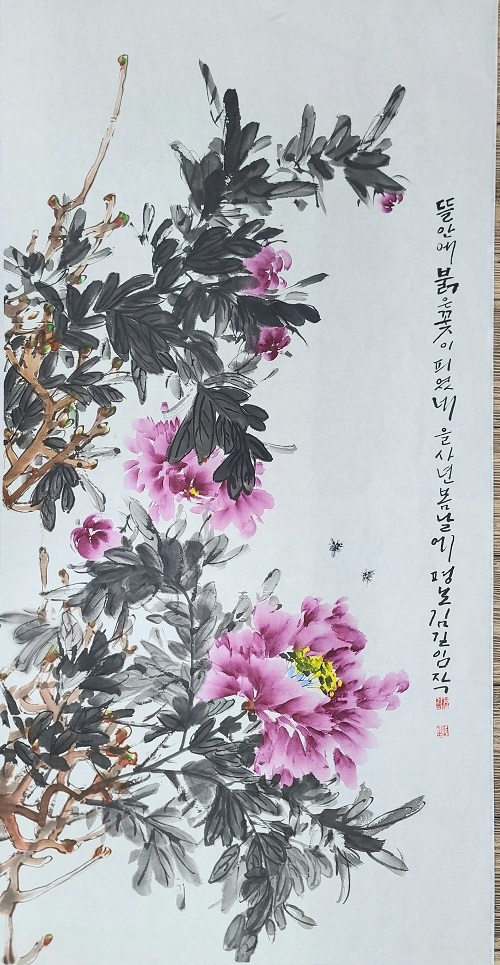 뜰안에 붉은꽃이 피었네 을사년봄날에 평보김길임작